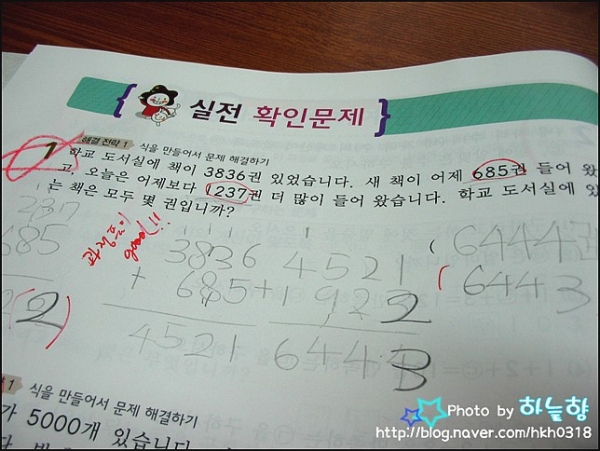 실전 확인문제
1 해결 전략 1 식을 만들어서 문제 해결하기
학교 도서실에 책이 3836권 있었습니다. 새 책이 어제 685권 들어 왔
고, 오늘은 어제보다 1237권 더 많이 들어 왔습니다. 학교 도서실에 있
는 책은 모두 몇 권입니까?
good!!
3836
+ 685
4521
4521
+ 1922
6443
6444
6443
1 식을 만들어서 문제 해결하기
가 5000개 있습니다.
Photo by 하늘향
http://blog.naver.com/hkh0318